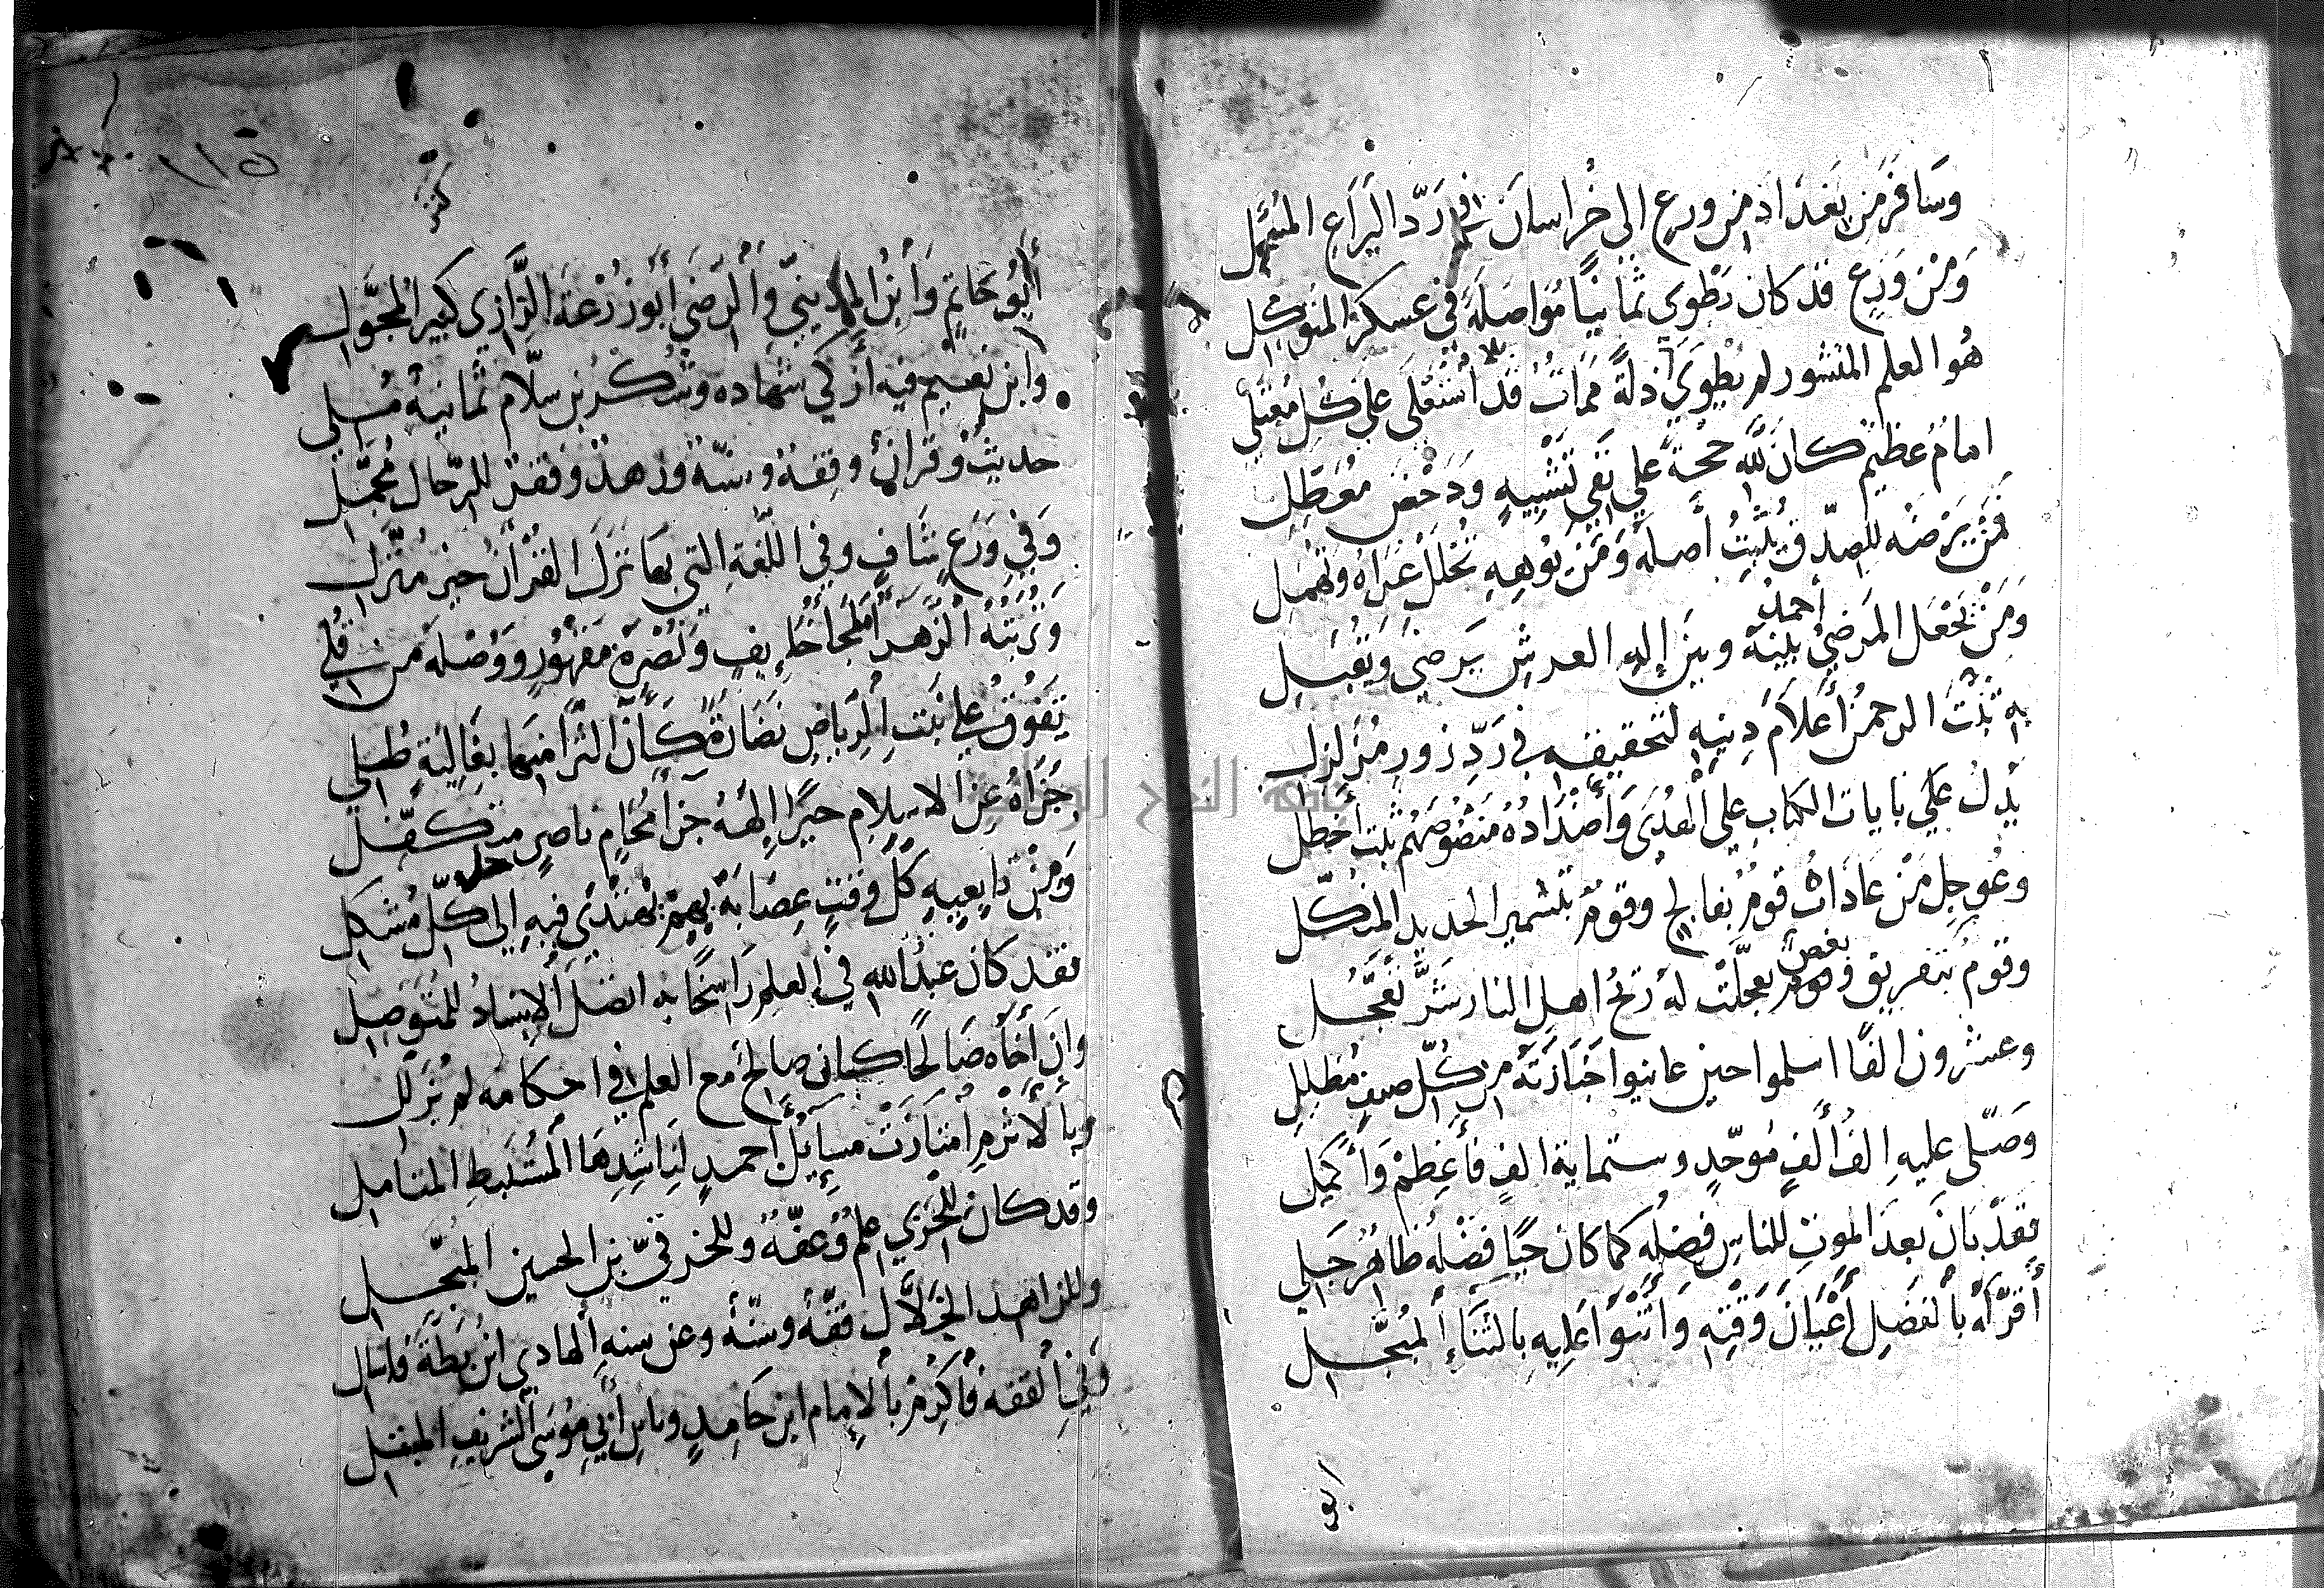 وسافر من بغداد من ورع الى خراسان في رد اليراع المثمل
ومن ورع قد كان يطوي ثمانيا مواصلة في عسكر المتوكل
هو العلم المنشور لم يطوي ذلة ممات قد استعلى على كل معتلي
امام عظيم كان لله حجة على نفي تشبيه ودحض معطل
فمن يرضه للصدق يثبت أصله ومن يوهه تحلل عراه وتهمل
ومن يجعل المرضي أحمد بينه وبين إله العرش يرضى ويقبل
به ثبت الرحمن أعلام دينه لتحقيقه في رد زور مزلزل
يدل علي بايات الكتاب على الهدى وأضداده منصوصهم بيت أخطل
وعوجل من عاداه قوم بفالج وقوم بتشمير الحديد المذكل
وقوم بتفريق وقوم بعض تعجلت له ريح اهل النار شر تعجل
وعشرون الفا اسلموا حين عاينوا جنازته من كل صنف مظلل
وصلى عليه الف ألف موحد وستماية الف فأعظم وأكمل
فقد بان بعد الموت للناس فضله كما كان حيا فضله ظاهر جلي
أقر له بالفضل أعيان وقته وأثنوا عليه بالثناء المبجل
ابو
١١٥
أبو حاتم وابن المديني والرضي أبو زرعة الرازي كبير المجول
وابن نعيم فيه أزكي شهاده وشكر بن سلام ثمانية مسلي
حديث وقرآن وفقه وسنة وزهد وفقر للرجال مجمل
وفي ورع شاف وفي اللغة التي بها نزل القرآن حين منزل
وتربته الزهرا ملجا خايف ونصرة مقهور ووصلة من قلي
تفوق على نبت الرياض نضارة كأن الثرا منها بغالية طلي
جزاه عن الاسلام خيرا إلهه جزا محام ناصر متكفل
ومن تابعيه كل وقت عصابة بهم نهتدي فيه إلى حل كل مشكل
فقد كان عبد الله في العلم راسخا به اتصل الإسناد للمتوصل
وان أخاه صالحا كان صالحا مع العلم في احكامه لم يزلل
وبالأثرم امتازت مسائل أحمد لناشدها المستنبط المتأمل
وقد كان للحربي علم وعفة وللخرقي بن الحسين المبجل
وللزاهد الخلال فقه وسنة وعن سنة الهادي ابن بطة فاسال
وفي الفقه فأكرم بالإمام ابن حامد وبابن أبي موسى الشريف المبتل